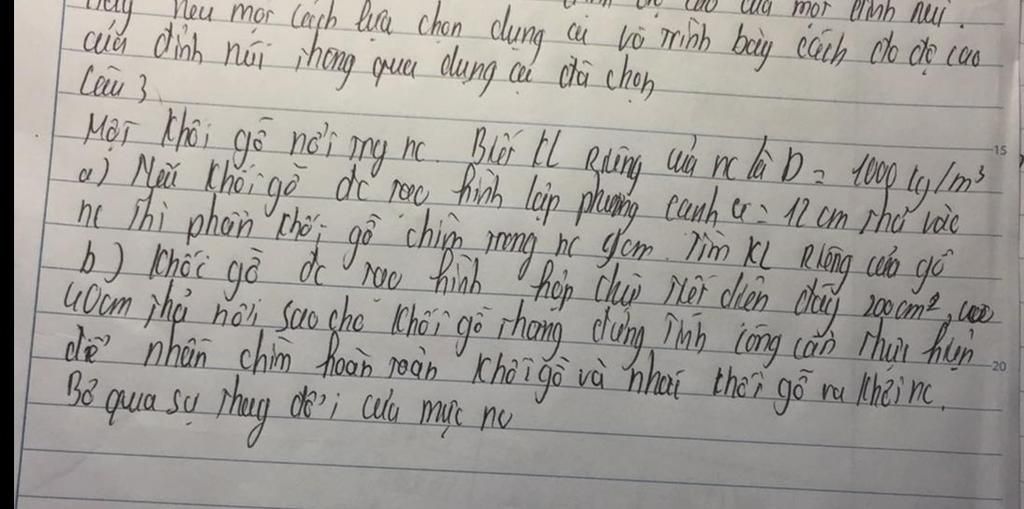 nêu một cách lựa chọn dụng cụ và trình bày cách đo độ cao
của đỉnh núi thông qua dụng cụ đã chọn
Câu 3
Một khối gỗ nổi trg nc. Biết KL Riêng của nc là D = 1000 kg/m³
a) Nếu khối gỗ đc tạc hình lập phương cạnh a = 12 cm thả vào
nc thì phần khối gỗ chìm trong nc 9cm. Tìm KL Riêng của gỗ
b) Khối gỗ đc tạc hình hộp chữ tiết diện đáy 200cm², cao
40cm thả nổi sao cho khối gỗ thẳng đứng Tính công cần thực hiện
để nhấn chìm hoàn toàn khối gỗ và nhấc khối gỗ ra khỏi nc.
Bỏ qua sự thay đổi của mực nc